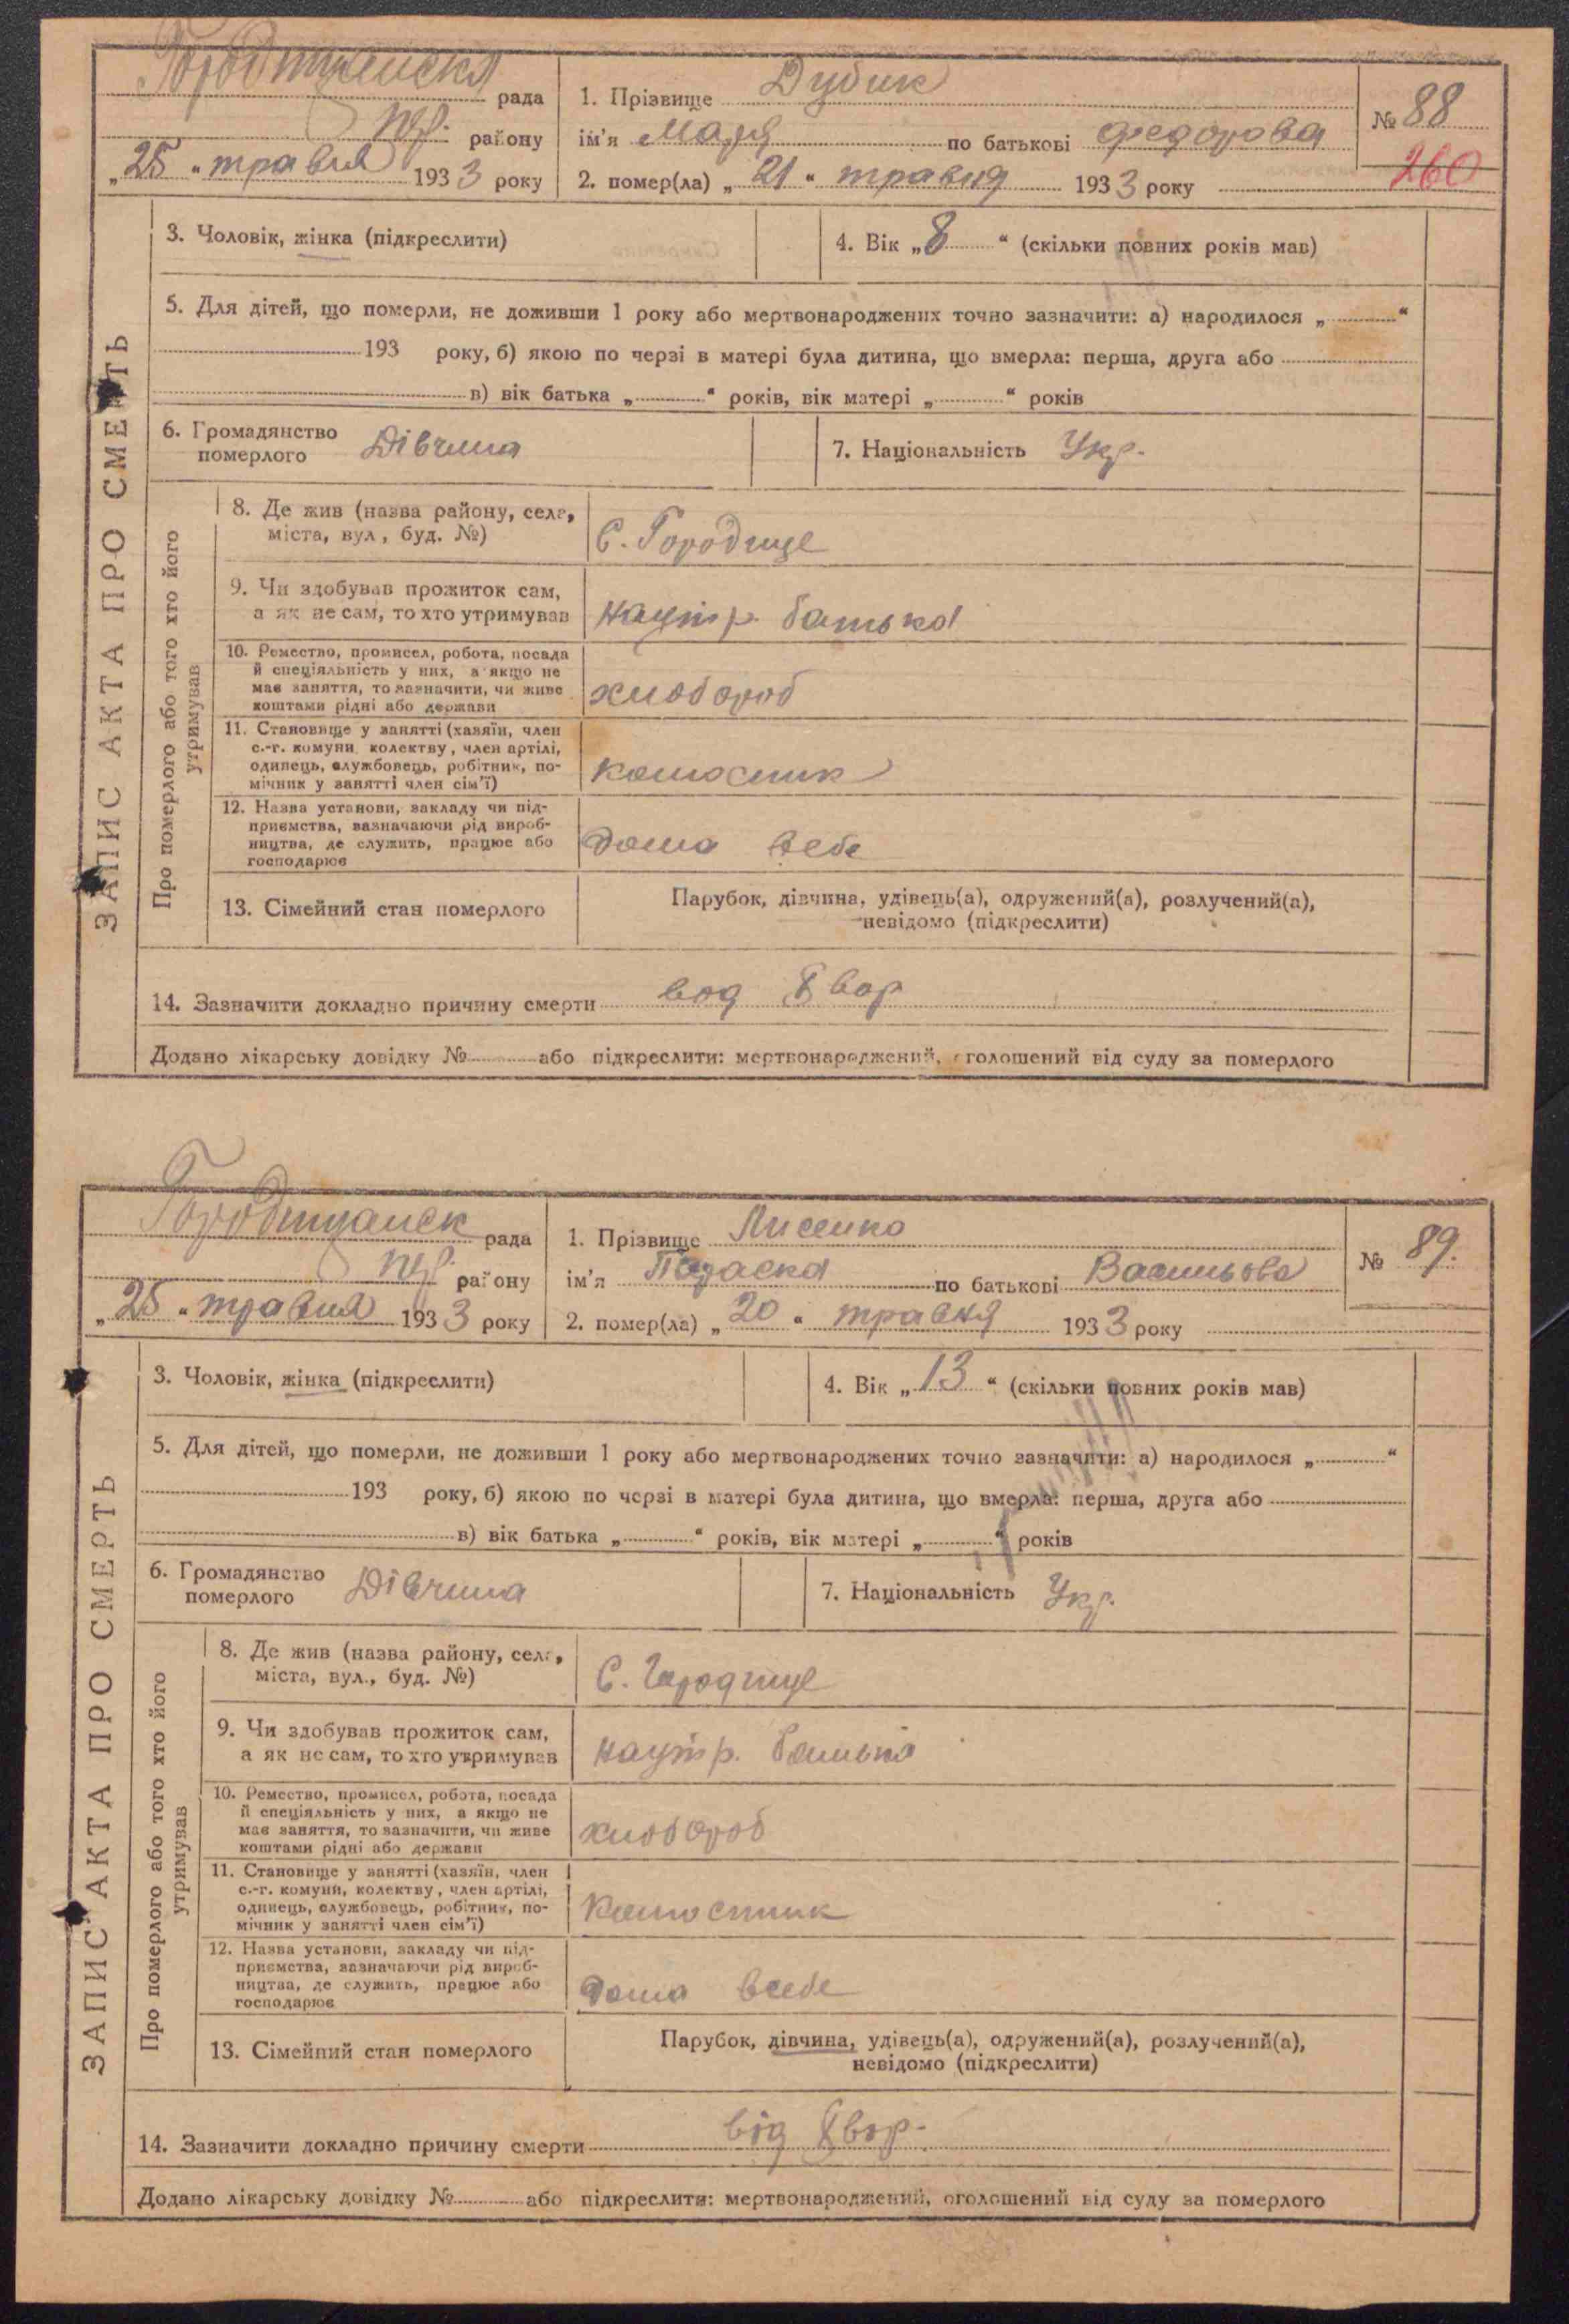 ЗАПИС АКТА ПРО СМЕРТЬ
Городищенска рада
району
„25“ травня 1933 року
1. Прізвище Дубик
ім'я Марія по батькові Федорова
2. помер(ла) „21“ травня 1933 року
№ 88
260
3. Чоловік, жінка (підкреслити)
4. Вік „8“ (скільки повних років мав)
5. Для дітей, що померли, не доживши 1 року або мертвонароджених точно зазначити: а) народилося „ “
193 року, б) якою по черзі в матері була дитина, що вмерла: перша, друга або
в) вік батька „ “ років, вік матері „ “ років
6. Громадянство
померлого Дівчина
7. Національність Укр.
Про померлого або того хто його
утримував
8. Де жив (назва району, села,
міста, вул., буд. №)
С. Городище
9. Чи здобував прожиток сам,
а як не сам, то хто утримував
на утр. батька
10. Ремество, промисел, робота, посада
й спеціяльність у них, а якщо не
має заняття, то зазначити, чи живе
коштами рідні або держави
хлібороб
11. Становище у занятті (хазяїн, член
с.-г. комуни, колективу, член артілі,
одинець, службовець, робітник, по-
мічник у занятті член сім'ї)
колгоспник
12. Назва установи, закладу чи під-
приємства, зазначаючи рід вироб-
ництва, де служить, працює або
господарює
дома в себе
13. Сімейний стан померлого
Парубок, дівчина, удівець(а), одружений(а), розлучений(а),
невідомо (підкреслити)
14. Зазначити докладно причину смерти вод
Додано лікарську довідку № або підкреслити: мертвонароджений, оголошений від суду за померлого
ЗАПИС АКТА ПРО СМЕРТЬ
Городищанск рада
району
„25“ травня 1933 року
1. Прізвище Лисенко
ім'я Параска по батькові Васильова
2. помер(ла) „20“ травня 1933 року
№ 89.
3. Чоловік, жінка (підкреслити)
4. Вік „13“ (скільки повних років мав)
5. Для дітей, що померли, не доживши 1 року або мертвонароджених точно зазначити: а) народилося „ “
193 року, б) якою по черзі в матері була дитина, що вмерла: перша, друга або
в) вік батька „ “ років, вік матері „ “ років
6. Громадянство
померлого Дівчина
7. Національність Укр.
Про померлого або того хто його
утримував
8. Де жив (назва району, села,
міста, вул., буд. №)
С. Городище
9. Чи здобував прожиток сам,
а як не сам, то хто утримував
на утр. батька
10. Ремество, промисел, робота, посада
й спеціяльність у них, а якщо не
має заняття, то зазначити, чи живе
коштами рідні або держави
хлібороб
11. Становище у занятті (хазяїн, член
с.-г. комуни, колективу, член артілі,
одинець, службовець, робітник, по-
мічник у занятті член сім'ї)
колгоспник
12. Назва установи, закладу чи під-
приємства, зазначаючи рід вироб-
ництва, де служить, працює або
господарює
дома в себе
13. Сімейний стан померлого
Парубок, дівчина, удівець(а), одружений(а), розлучений(а),
невідомо (підкреслити)
14. Зазначити докладно причину смерти від
Додано лікарську довідку № або підкреслити: мертвонароджений, оголошений від суду за померлого